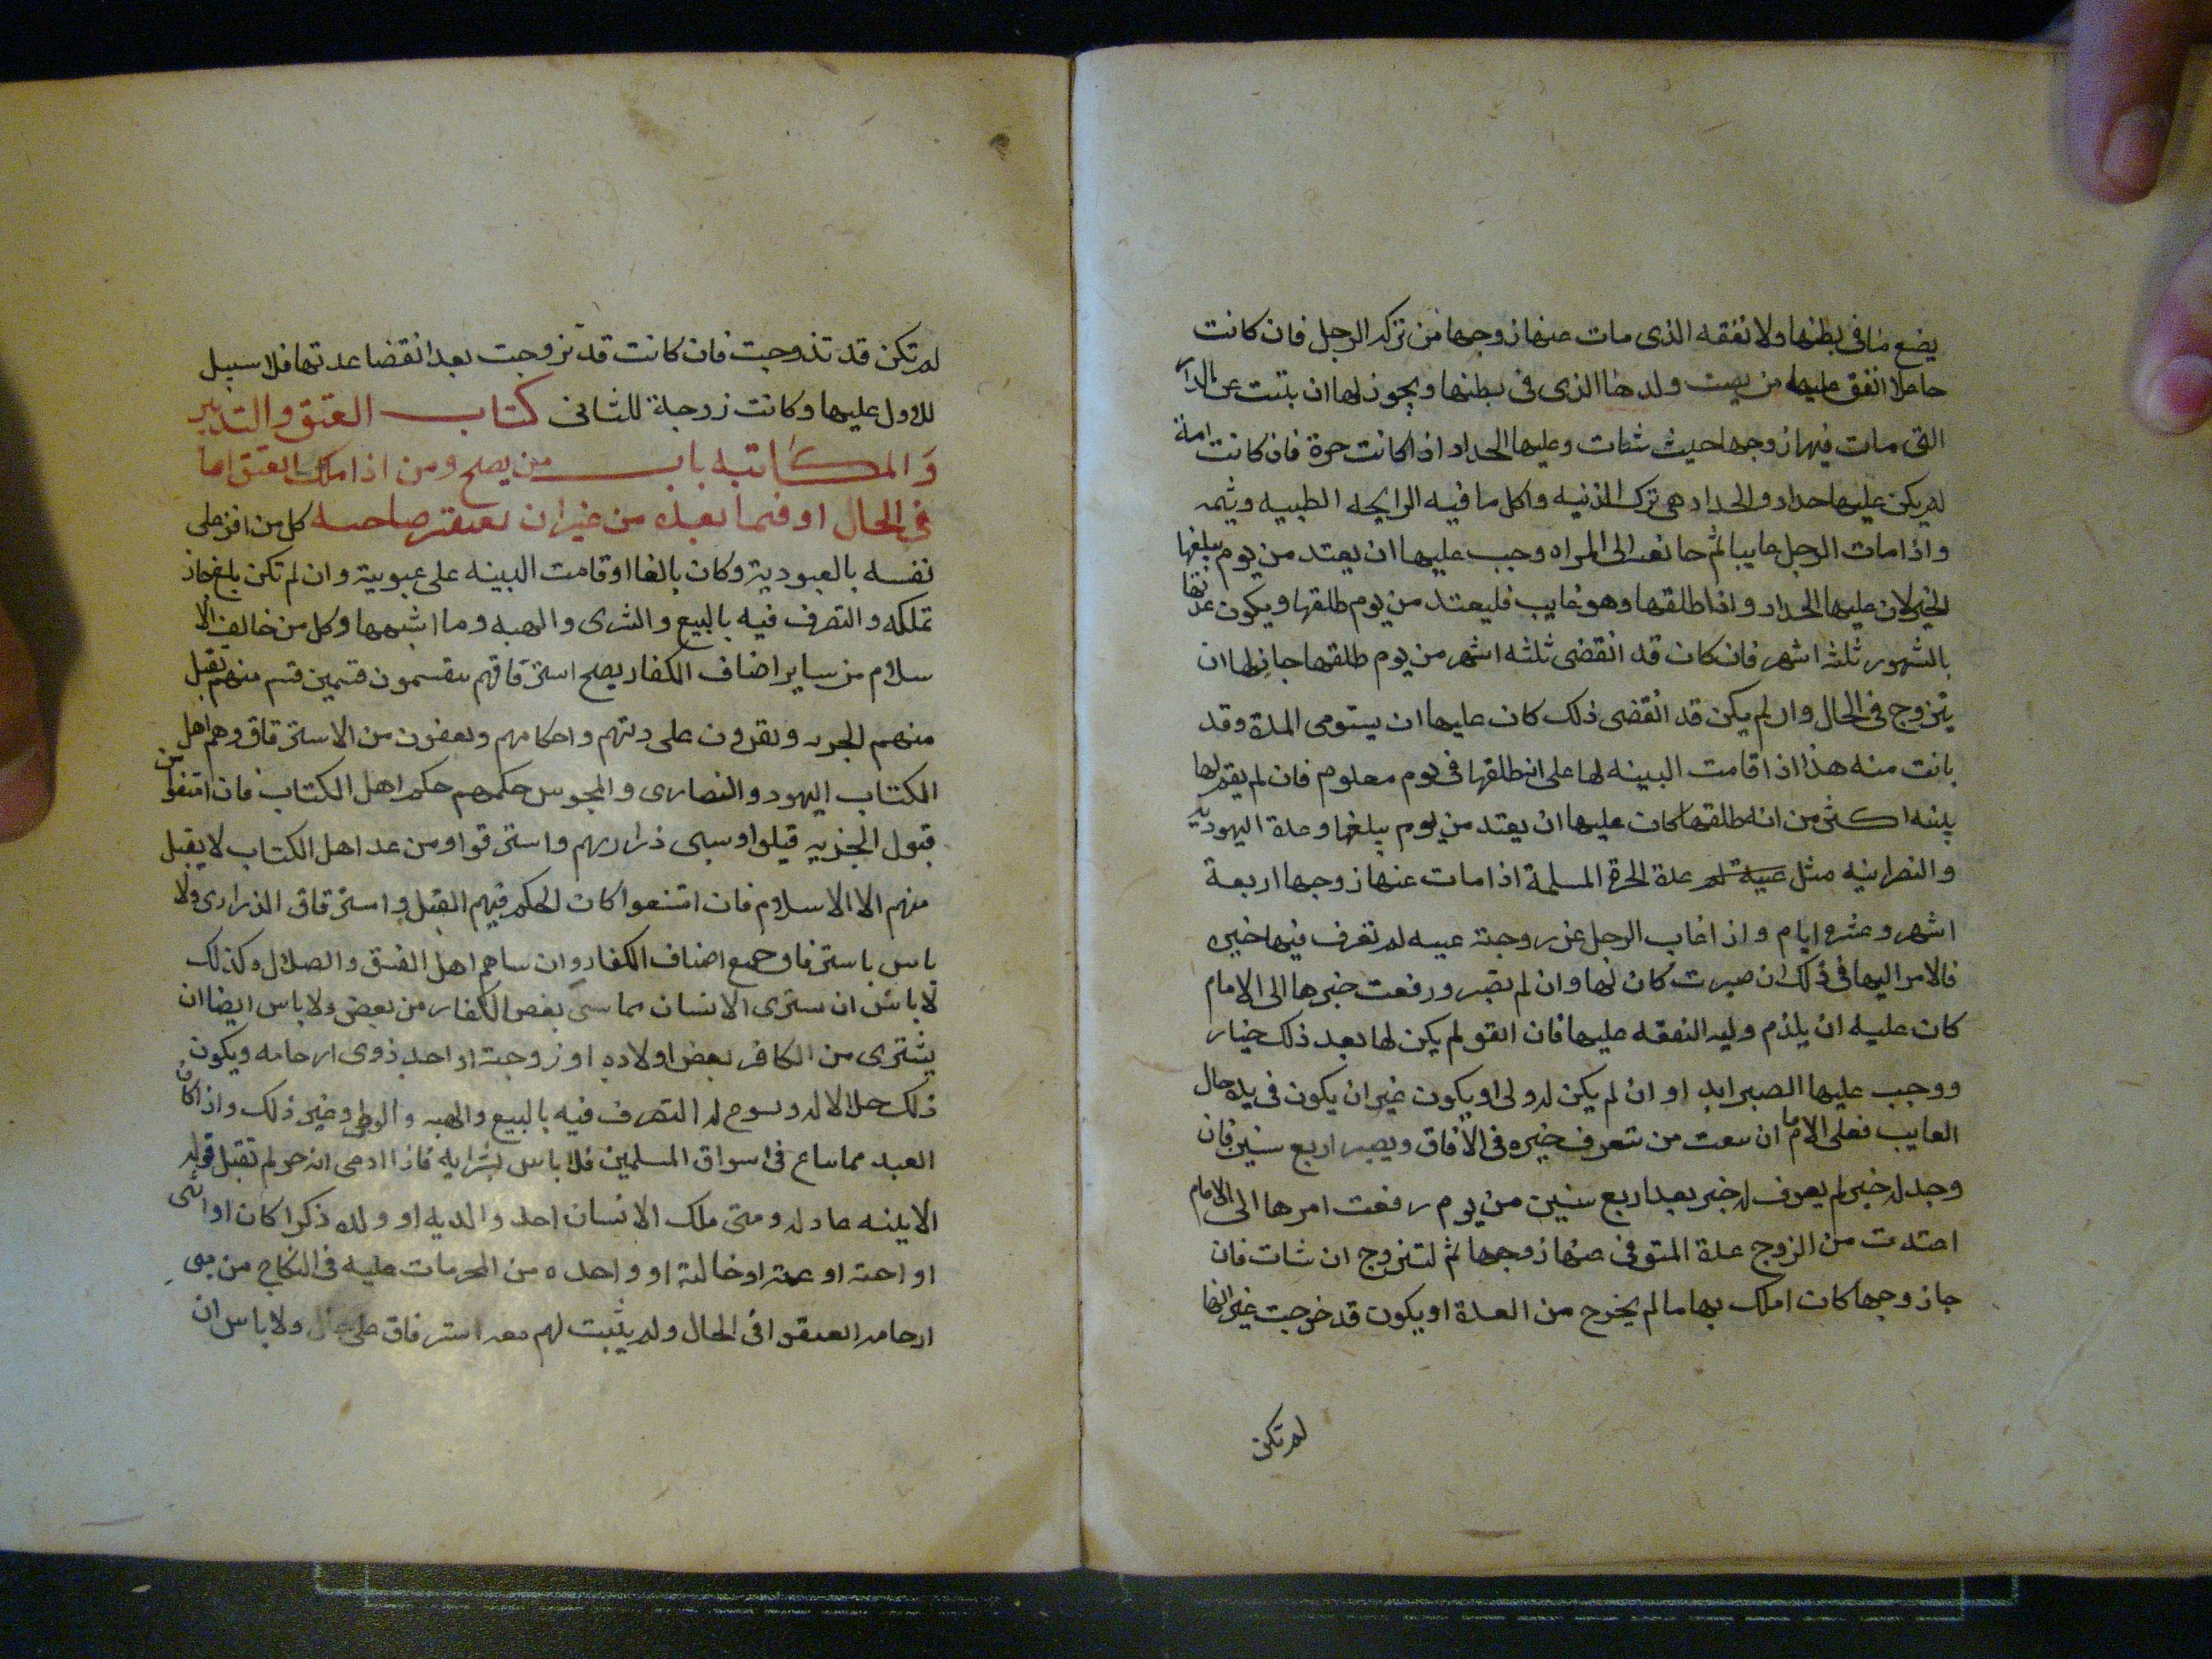 يضع ما فى بطنها ولا نفقه الذى مات عنها زوجها من تركه الرجل فان كانت
حاملا انفق عليها من نصيب ولدها الذى فى بطنها ويجوز لها ان تبيت عن الدار
التى مات فيها زوجها حيث شات وعليها الحداد اذا كانت حرة فان كانت امة
لم يكن عليها حداد والحداد هى ترك الزنيه واكل ما فيه الرايحه الطيبه وشمه
واذا مات الرجل غايبا ثم جا نعيه الى المراه وجب عليها ان يعتد من يوم يبلغها
الخبر لان عليها الحداد واذا طلقها وهو غايب فليعتد من يوم طلقها ويكون عدتها
بالشهور ثلثه اشهر فان كان قد انقضى ثلثه اشهر من يوم طلقها جاز لها ان
يتزوج فى الحال وان لم يكن قد انقضى ذلك كان عليها ان يستوفى المدة وقد
بانت منه هذا اذا قامت البينه لها على انه طلقها فى يوم معلوم فان لم يقم لها
بينه اكثر من انه طلقها كان عليها ان يعتد من يوم يبلغها وعدة اليهودية
والنصرانيه مثل عدة الحرة المسلمة اذا مات عنها زوجها اربعة
اشهر وعشرة ايام واذا غاب الرجل عن زوجته غيبه لم تعرف فيها خبره
فالامر اليها فى ذلك ان صبرت كان لها وان لم تصبر ورفعت خبرها الى الامام
كان عليه ان يلزم وليه النفقه عليها فان انفق لم يكن لها بعد ذلك خيار
ووجب عليها الصبر ابدا وان لم يكن له ولى او يكون غير ان يكون فى يده مال
الغايب فعلى الامام ان يبعث من يتعرف خبره فى الافاق ويصبر اربع سنين فان
وجد له خبر لم يعرف له خبر بعد اربع سنين من يوم رفعت امرها الى الامام
اعتدت من الزوج عدة المتوفى عنها زوجها ثم لتتزوج ان شات فان
جا زوجها كان املك بها ما لم يخرج من العدة او يكون قد خرجت غير انها
لم تكن
لم تكن قد تزوجت فان كانت قد تزوجت بعد انقضا عدتها فلا سبيل
للاول عليها وكانت زوجة للثانى كتاب العتق والتدبير
والمكاتبه باب من يصح ومن اذا ملك انعتق اما
فى الحال او فيما بعده من غير ان يعتقه صاحبه كل من اقر على
نفسه بالعبودية وكان بالغا او قامت البينه على عبودية وان لم تكن بلغ جاز
تملكه والتصرف فيه بالبيع والشرى والهبه وما اشبهها وكل من خالف الا
سلام من ساير اصناف الكفار يصح استرقاقهم ينقسمون قسمين قسم منهم تقبل
منهم الجزيه ويقرون على دينهم واحكامهم ويعفون من الاسترقاق وهم اهل
الكتاب اليهود والنصارى والمجوس حكمهم حكم اهل الكتاب فان امتنعوا من
قبول الجزيه قتلوا وسبى ذراريهم واسترقوا ومن عدا اهل الكتاب لا يقبل
منهم الا الاسلام فان امتنعوا كان الحكم فيهم القتل واسترقاق الذرارى ولا
باس باسترقاق جميع اصناف الكفار وان سباهم اهل الفسق والضلال وكذلك
لا باس ان يشترى الانسان مما سبى بعض الكفار من بعض ولا باس ايضا ان
يشترى من الكافر بعض اولاده او زوجته او احد ذوى ارحامه ويكون
ذلك حلالا له ويسوغ له التصرف فيه بالبيع والهبه والوطى وغير ذلك واذا كان
العبد مما يباع فى اسواق المسلمين فلا باس بشرايه فاذا ادعى انه حر لم تقبل قوله
الا ببينه عادله ومتى ملك الانسان احد والديه او ولده ذكرا كان او انثى
او اخته او عمته او خالته او واحده من المحرمات عليه فى النكاح من ذوى
ارحامه انعتقوا فى الحال ولم يثبت لهم معه استرقاق على حال ولا باس ان